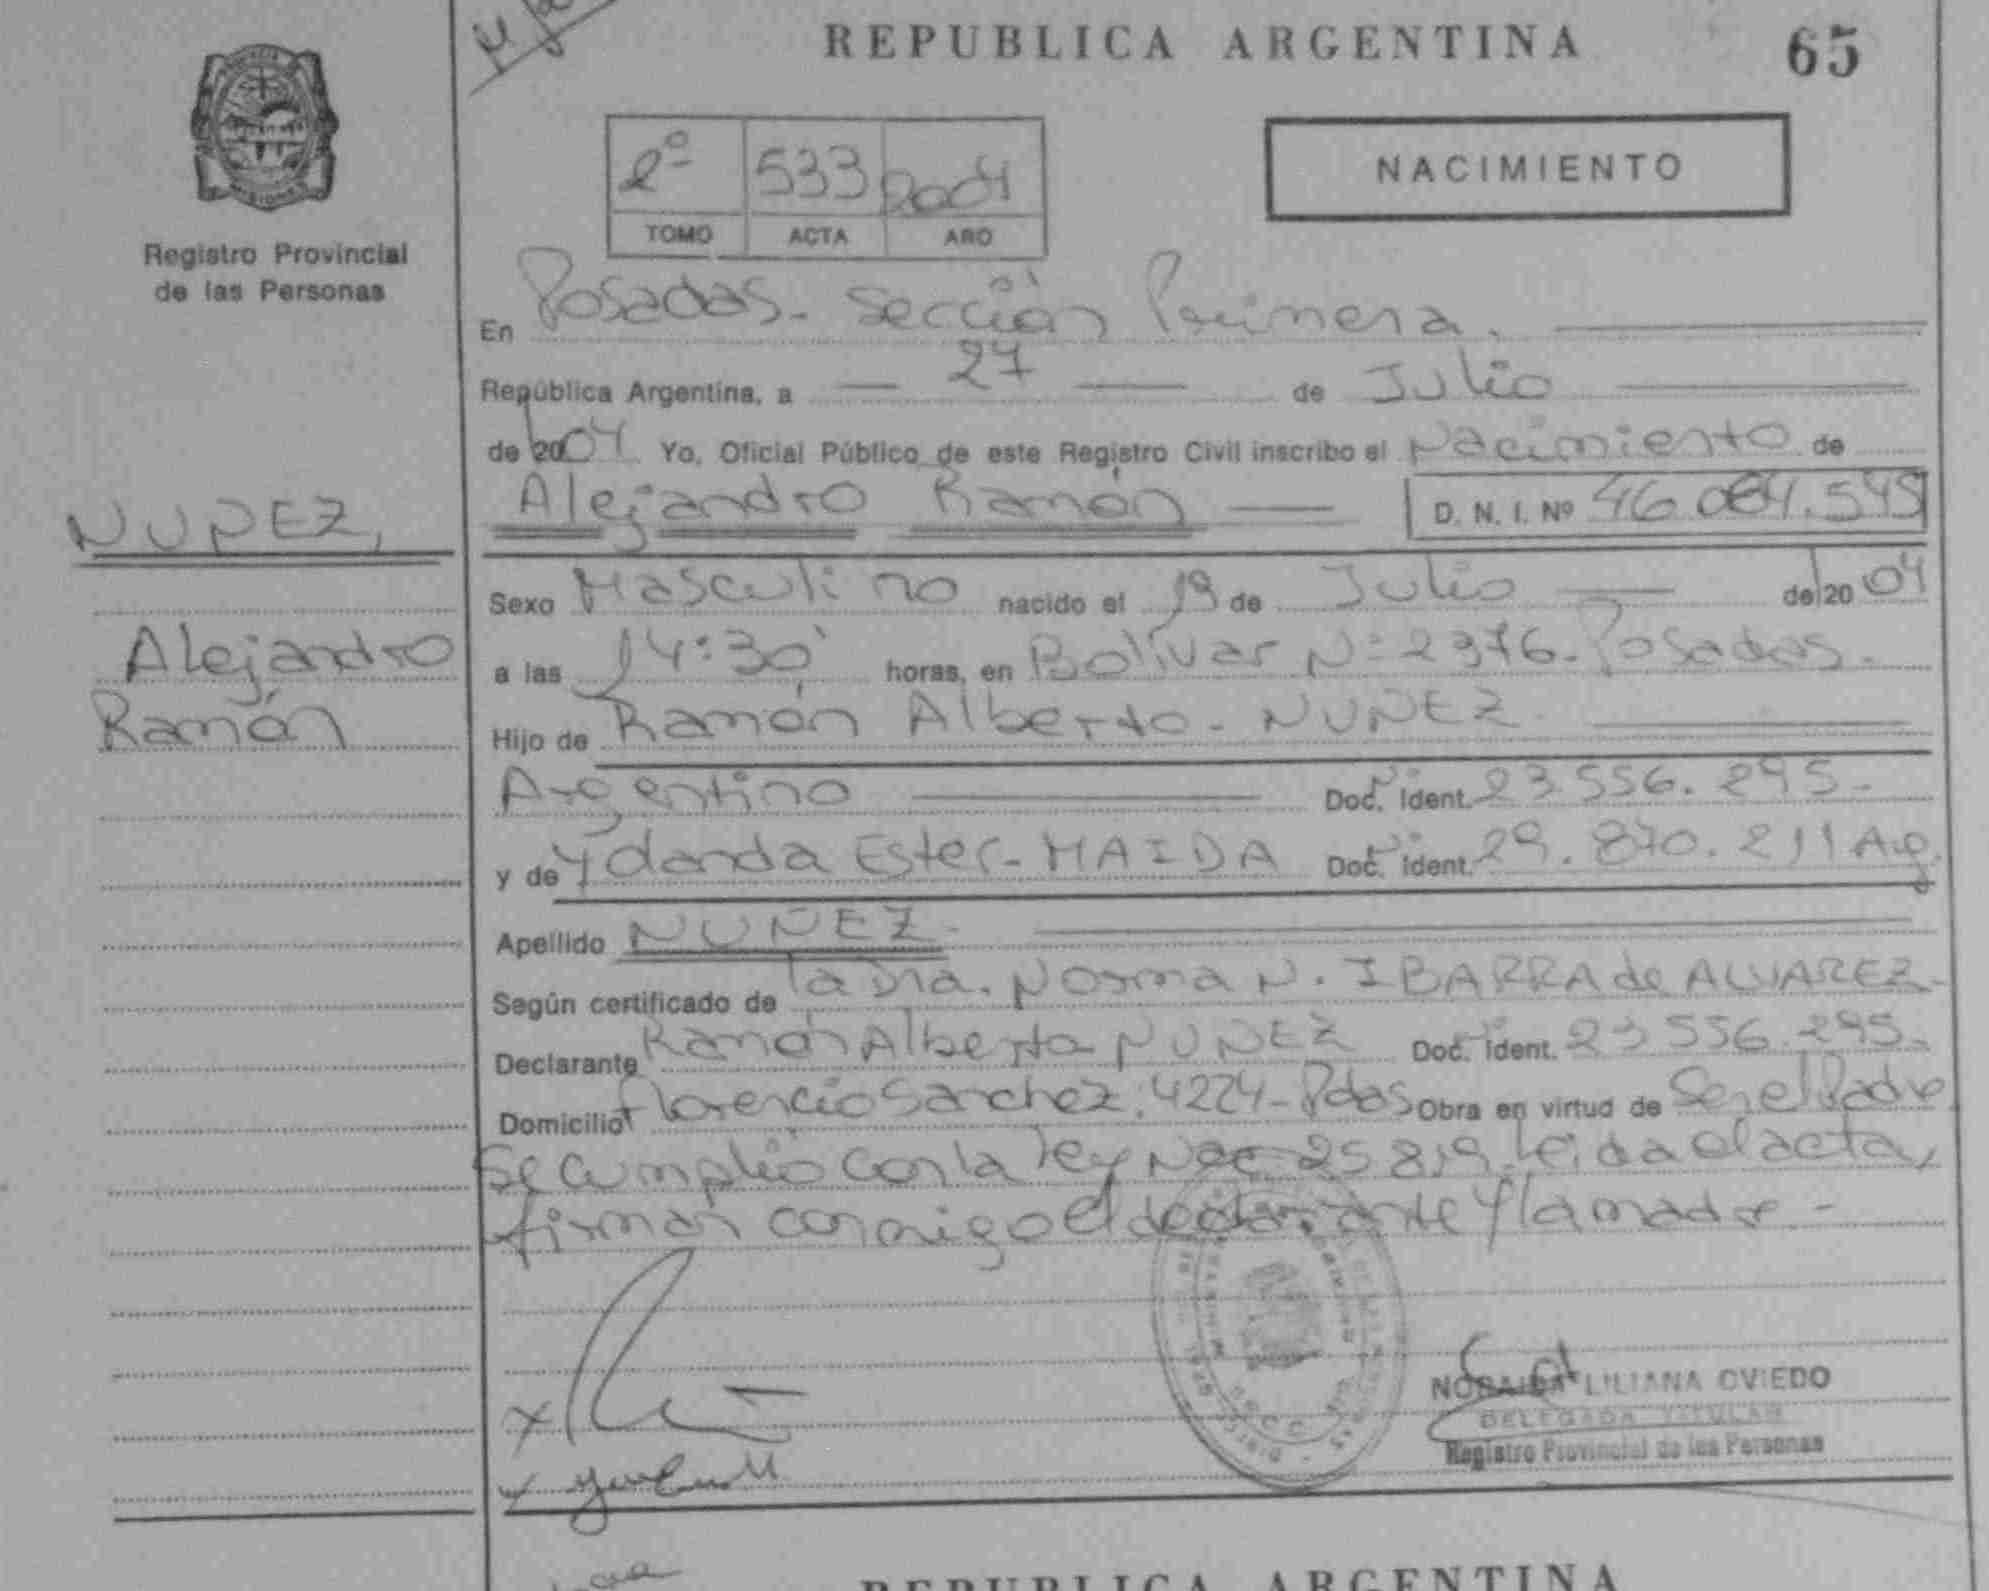 REPUBLICA ARGENTINA
65
2º 533 2004
TOMO ACTA AÑO
NACIMIENTO
Registro Provincial
de las Personas
En Posadas - Sección Primera.
República Argentina, a 27 de Julio
de 2004 Yo, Oficial Público de este Registro Civil inscribo el Nacimiento de
NUÑEZ,
Alejandro
Ramón
Alejandro Ramón D. N. I. Nº
Sexo Masculino nacido el 19 de Julio de 2004
a las 14:30' horas, en Bolívar Nº 2376 - Posadas -
Hijo de Ramón Alberto - NUÑEZ
Argentino Doc. Ident. Nº 23.556.295 -
y de Yolanda Ester - MAIDA Doc. Ident. Nº 29.870.211 Arg.
Apellido NUÑEZ -
Según certificado de la Dra. Norma N. IBARRA de ALVAREZ -
Declarante Ramón Alberto NUÑEZ Doc. Ident. Nº 23.556.295 -
Domicilio Florencio Sanchez 4224 - Pdas Obra en virtud de Ser el Padre
Se cumplió con la ley Nac 25.819. Leida el acta,
firman conmigo el declarante y la madre -
NORAIDA LILIANA OVIEDO
DELEGADA TITULAR
Registro Provincial de las Personas
REPUBLICA ARGENTINA